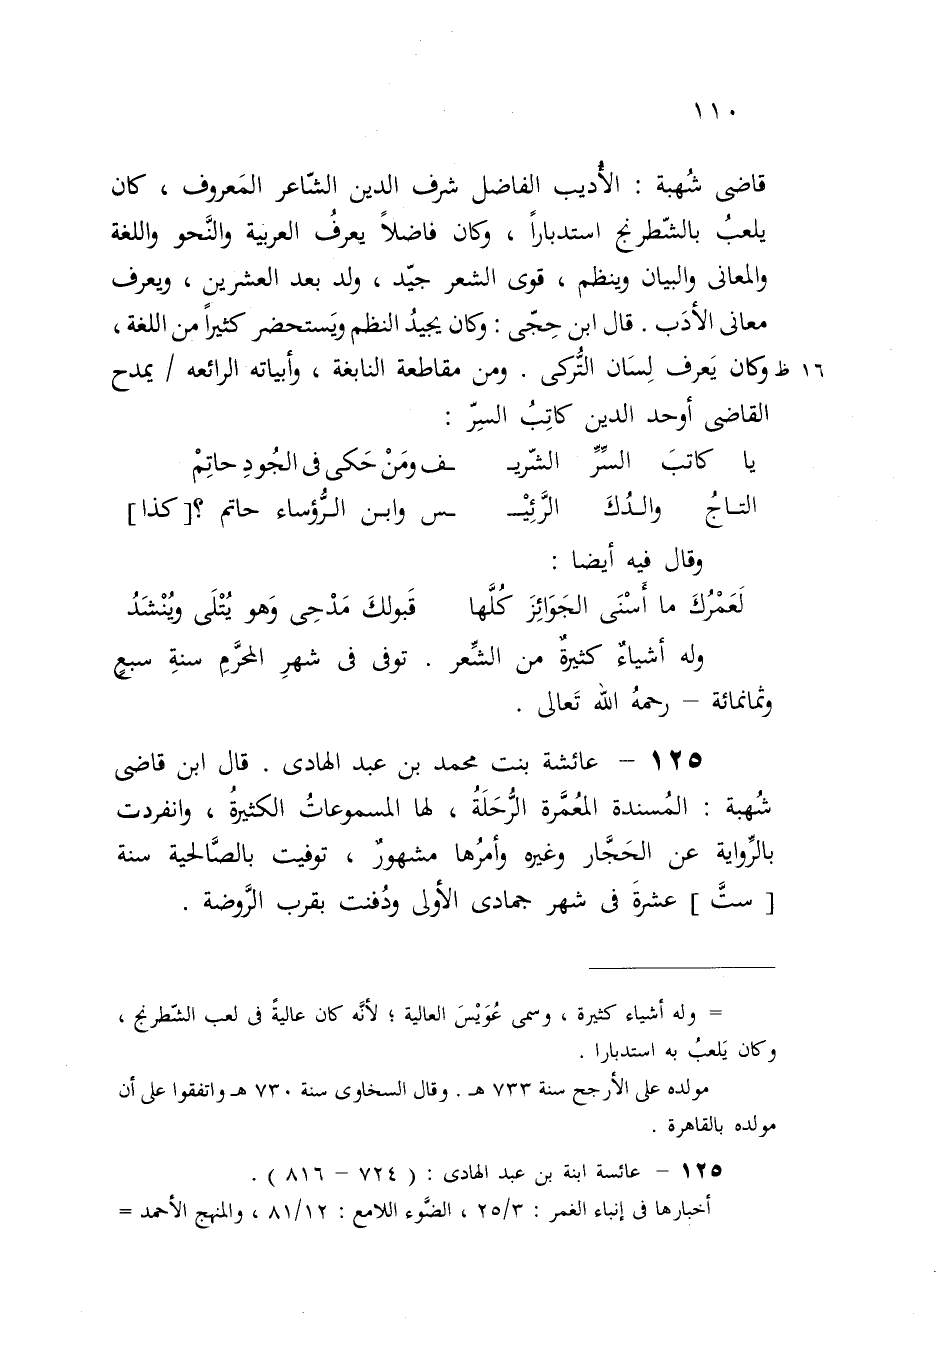 ١١٠
قاضى شُهبة : الأُديب الفاضل شرف الدين الشّاعر المَعروف ، كان
يلعبُ بالشّطرنج استدباراً ، وكان فاضلاً يعرفُ العربية والنَّحو واللغة
والمعانى والبيان وينظم ، قوى الشعر جيّد ، ولد بعد العشرين ، ويعرف
معانى الأدَب . قال ابن حِجّى : وكان يجيدُ النظم ويَستحضر كثيراً من اللغة ،
١٦ ظ وكان يَعرف لِسَان التُّركى . ومن مقاطعة النابغة ، وأبياته الرائعه / يمدح
القاضى أوحد الدين كاتِبُ السِرّ :
يا كاتبَ السِّرِّ الشّريـ ـف ومَنْ حَكى فى الجُودِ حاتِمْ
التـاجُ والـدُكَ الرَّئِيْــ ـس وابـن الـرُّؤساء حاتم ؟[ كذا ]
وقال فيه أيضا :
لَعَمْرُكَ ما أَسْنَى الجَوَائِزَ كُلَّها قَبولكَ مَدْحِى وَهو يُتْلَى ويُنْشَدُ
وله أشياءٌ كثيرةٌ من الشِّعر . توفى فى شهرِ المحرَّمِ سنةِ سبعٍ
وثمانمائة – رحمهُ الله تَعالى .
١٢٥ – عائشة بنت محمد بن عبد الهادى . قال ابن قاضى
شُهبة : المُسندة المُعَمَّرة الرُّحَلَةُ ، لها المسموعاتُ الكثيرةُ ، وانفردت
بالرِّواية عن الحَجَّار وغيره وأمرُها مشهورٌ ، توفيت بالصَّالحية سنة
[ ستَّ ] عشرةَ فى شهر جمادى الأولى ودُفنت بقرب الرَّوضة .
= وله أشياء كثيرة ، وسمى عُوَيْسَ العالية ؛ لأنَّه كان عاليةً فى لعب الشّطرنج ،
وكان يَلعبُ به استدبارا .
مولده على الأرجح سنة ٧٣٣ هـ . وقال السخاوى سنة ٧٣٠ هـ واتفقوا على أن
مولده بالقاهرة .
١٢٥ – عائسة ابنة بن عبد الهادى : ( ٧٢٤ – ٨١٦ ) .
أخبارها فى إنباء الغمر : ٢٥/٣ ، الضَّوء اللامع : ٨١/١٢ ، والمنهج الأحمد =